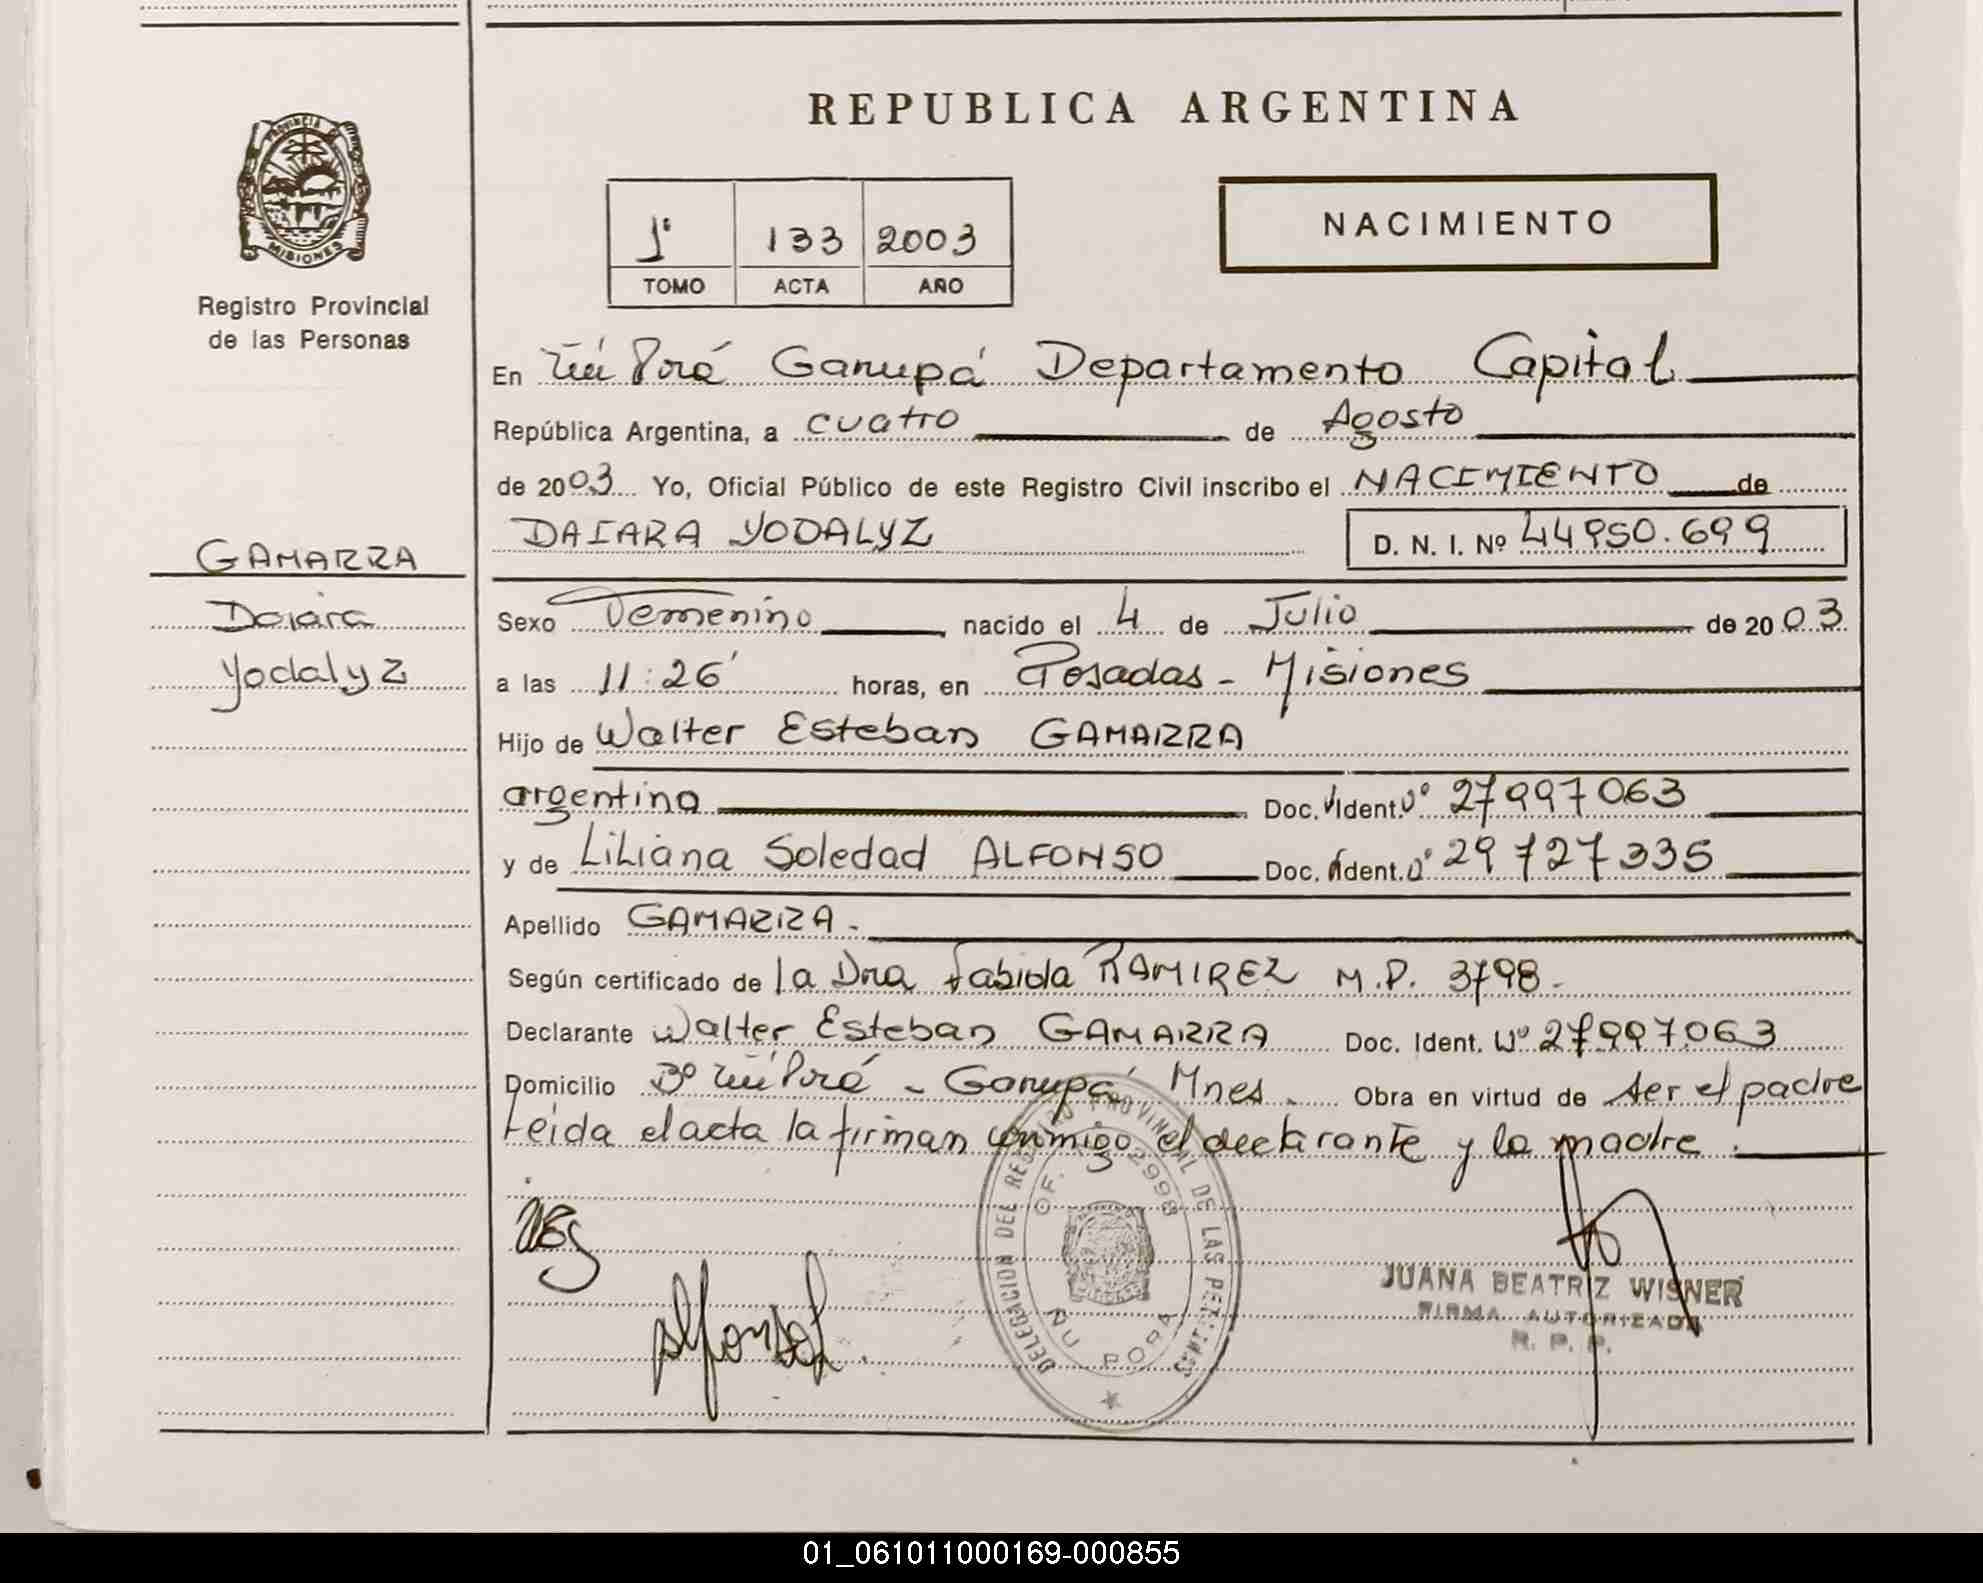 REPUBLICA ARGENTINA
PROVINCIA DE MISIONES
Registro Provincial
de las Personas
1º 133 2003
TOMO ACTA AÑO
NACIMIENTO
En Ñú Porá Garupá Departamento Capital
República Argentina, a cuatro de Agosto
de 2003 Yo, Oficial Público de este Registro Civil inscribo el NACIMIENTO de
DAIARA YODALYZ D. N. I. Nº 44950.699
GAMARRA
Daiara
Yodalyz
Sexo Femenino nacido el 4 de Julio de 2003
a las 11:26' horas, en Posadas - Misiones
Hijo de Walter Esteban GAMARRA
argentina Doc. Ident. Nº 27997063
y de Liliana Soledad ALFONSO Doc. Ident. Nº 29727335
Apellido GAMARRA.
Según certificado de la Dra Fabiola RAMIREZ M.P. 3798.
Declarante Walter Esteban GAMARRA Doc. Ident. Nº 27997063
Domicilio Bº Ñú Porá - Garupá Mnes. Obra en virtud de ser el padre
Leida el acta la firman conmigo el declarante y la madre.
DELEGACION DEL REGISTRO PROVINCIAL DE LAS PERSONAS
OF. 2998
ÑU PORA
JUANA BEATRIZ WISNER
FIRMA AUTORIZADA
R. P. P.
01_061011000169-000855